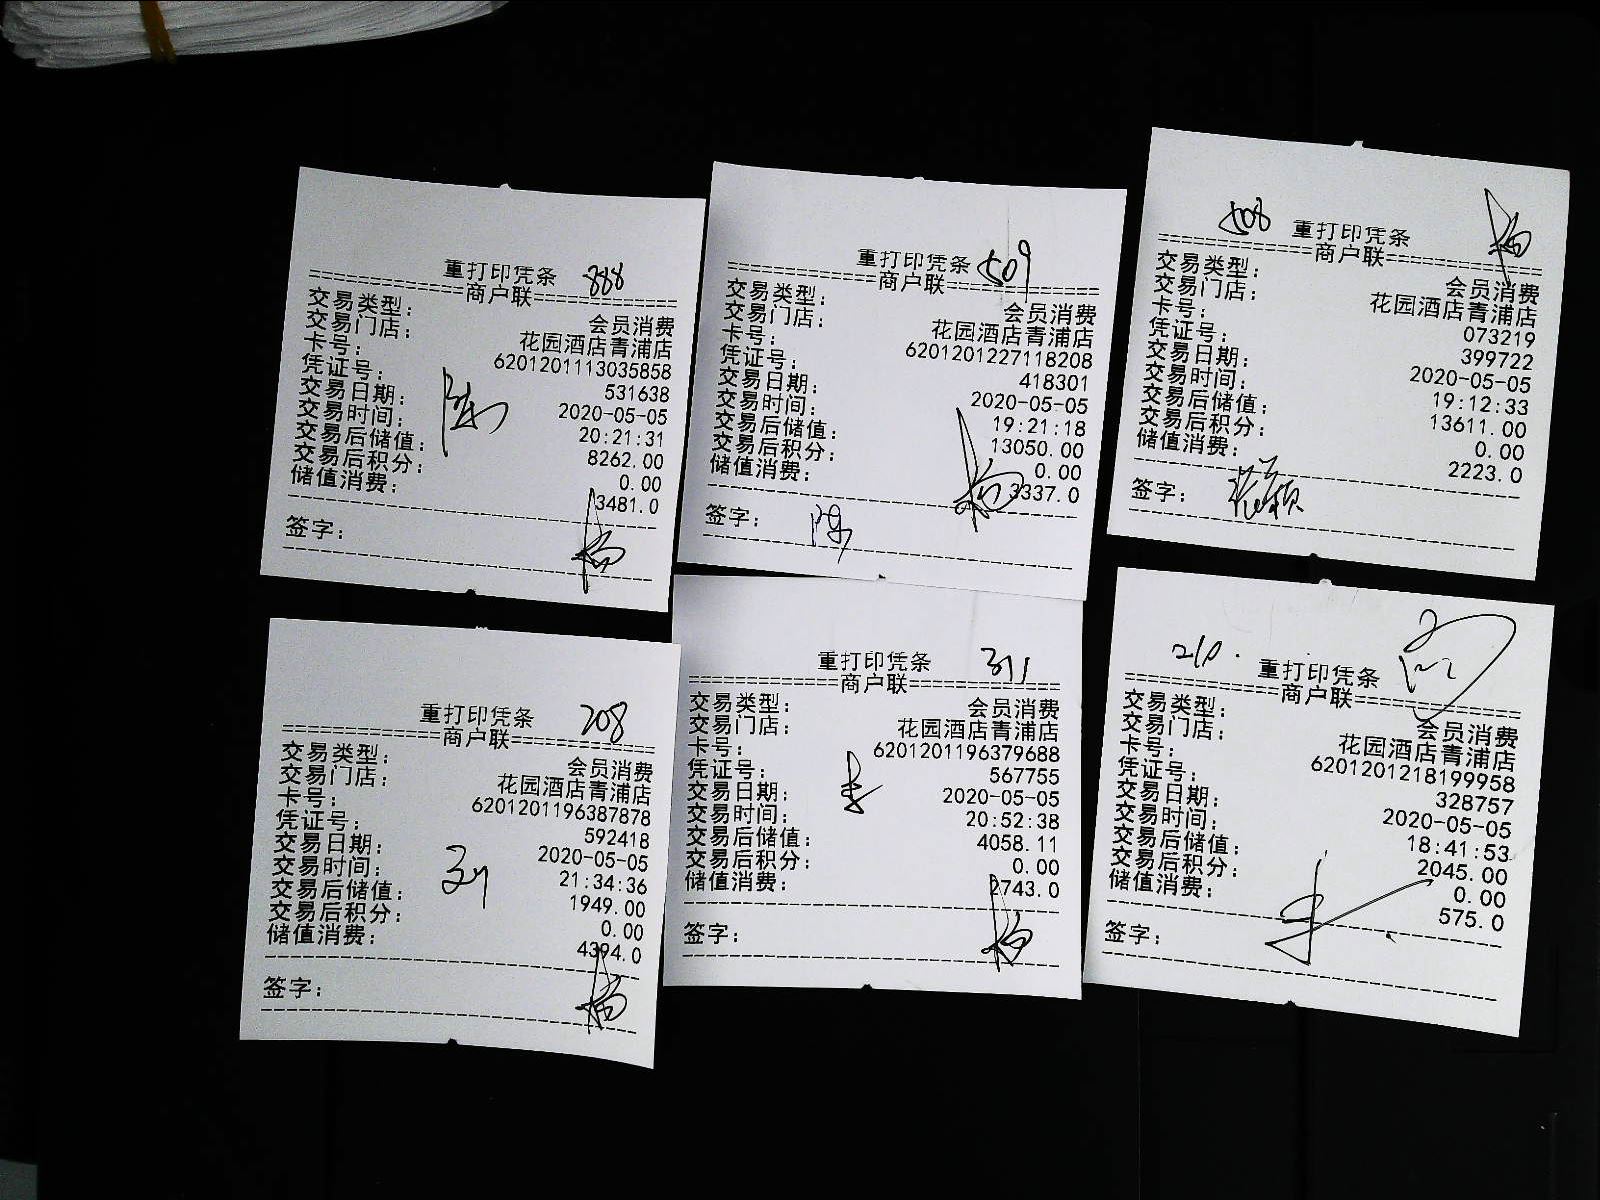 重打印凭条 888
============商户联============
交易类型: 会员消费
交易门店: 花园酒店青浦店
卡号: 6201201113035858
凭证号: 531638
交易日期: 2020-05-05
交易时间: 20:21:31
交易后储值: 8262.00
交易后积分: 0.00
储值消费: 3481.0
签字:
杨
重打印凭条 509
============商户联============
交易类型: 会员消费
交易门店: 花园酒店青浦店
卡号: 6201201227118208
凭证号: 418301
交易日期: 2020-05-05
交易时间: 19:21:18
交易后储值: 13050.00
交易后积分: 0.00
储值消费: 3337.0
杨
签字: 陈
508 重打印凭条 杨
============商户联============
交易类型: 会员消费
交易门店: 花园酒店青浦店
卡号: 073219
凭证号: 399722
交易日期: 2020-05-05
交易时间: 19:12:33
交易后储值: 13611.00
交易后积分: 0.00
储值消费: 2223.0
签字:
重打印凭条 208
============商户联============
交易类型: 会员消费
交易门店: 花园酒店青浦店
卡号: 6201201196387878
凭证号: 592418
交易日期: 2020-05-05
交易时间: 21:34:36
交易后储值: 1949.00
交易后积分: 0.00
储值消费: 4394.0
签字:
杨
重打印凭条 311
============商户联============
交易类型: 会员消费
交易门店: 花园酒店青浦店
卡号: 6201201196379688
凭证号: 567755
交易日期: 2020-05-05
交易时间: 20:52:38
交易后储值: 4058.11
交易后积分: 0.00
储值消费: 2743.0
签字:
杨
210. 重打印凭条
============商户联============
交易类型: 会员消费
交易门店: 花园酒店青浦店
卡号: 6201201218199958
凭证号: 328757
交易日期: 2020-05-05
交易时间: 18:41:53
交易后储值: 2045.00
交易后积分: 0.00
储值消费: 575.0
签字: